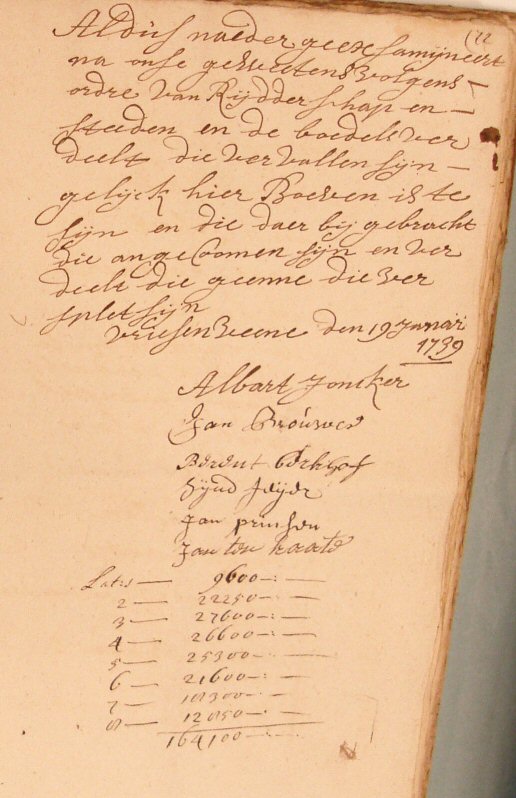 (22
Aldus naeder geexsamijneert
na onse geweetens volgens
ordre van Rijdderschap en
steeden en de boedels ver
deelt die vervallen sijn
gelijck hier Boeven is te
sijn en die daer bij gebracht
die angecoomen sijn en ver
deelt die geenne die ver
splet sijn
vriesenveene den 19 Janari
1739
Albart Joncker
Jan Brouwer
Berent Berkhof
Jan prinsen
Jan ten kaate
Latus — 9600 —:—
2 — 22250 —:—
3 — 27600 —:—
4 — 26600 —:—
5 — 25300 —:—
6 — 21600 —:—
7 — 18300 —:—
8 — 12850 —:—
164100 —:—